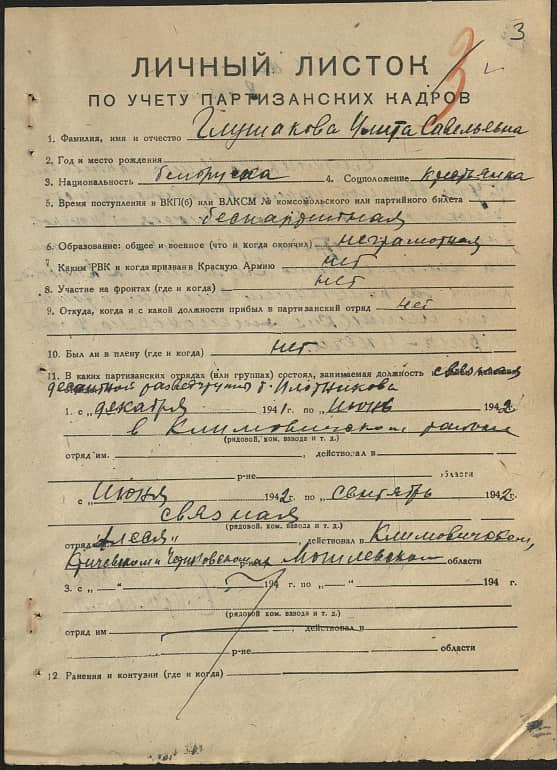 3
3
ЛИЧНЫЙ ЛИСТОК
ПО УЧЕТУ ПАРТИЗАНСКИХ КАДРОВ
1. Фамилия, имя и отчество Глушакова Улита Савельевна
2. Год и место рождения
3. Национальность белоруска 4. Соцположение крестьянка
5. Время поступления в ВКП(б) или ВЛКСМ № комсомольского или партийного билета
беспартийная
6. Образование: общее и военное (что и когда окончил) неграмотная
7 Каким РВК и когда призван в Красную Армию нет
8. Участие на фронтах (где и когда) нет
9. Откуда, когда и с какой должности прибыл в партизанский отряд нет
10. Был ли в плену (где и когда) нет
11. В каких партизанских отрядах (или группах) состоял, занимаемая должность и связная
десантной разведгруппе т. Плотникова
1. с „ декабря 1941 г. по „ июнь 1942
в Климовичском районе
(рядовой, ком. взвода и т. д.)
отряд им. , действовал в
р-не области
с „ Июня 1942 г. по „ сентябрь 1942 г.
связная
(рядовой, ком. взвода и т. д.)
отряд , действовал в Климовичском,
Кричевском и Чериковском Могилевской области
3. с „ — “ 194 г. по „ — “ 194 г.
(рядовой, ком. взвода и т. д.)
отряд им , действовал в
р-не области
12. Ранения и контузии (где и когда)